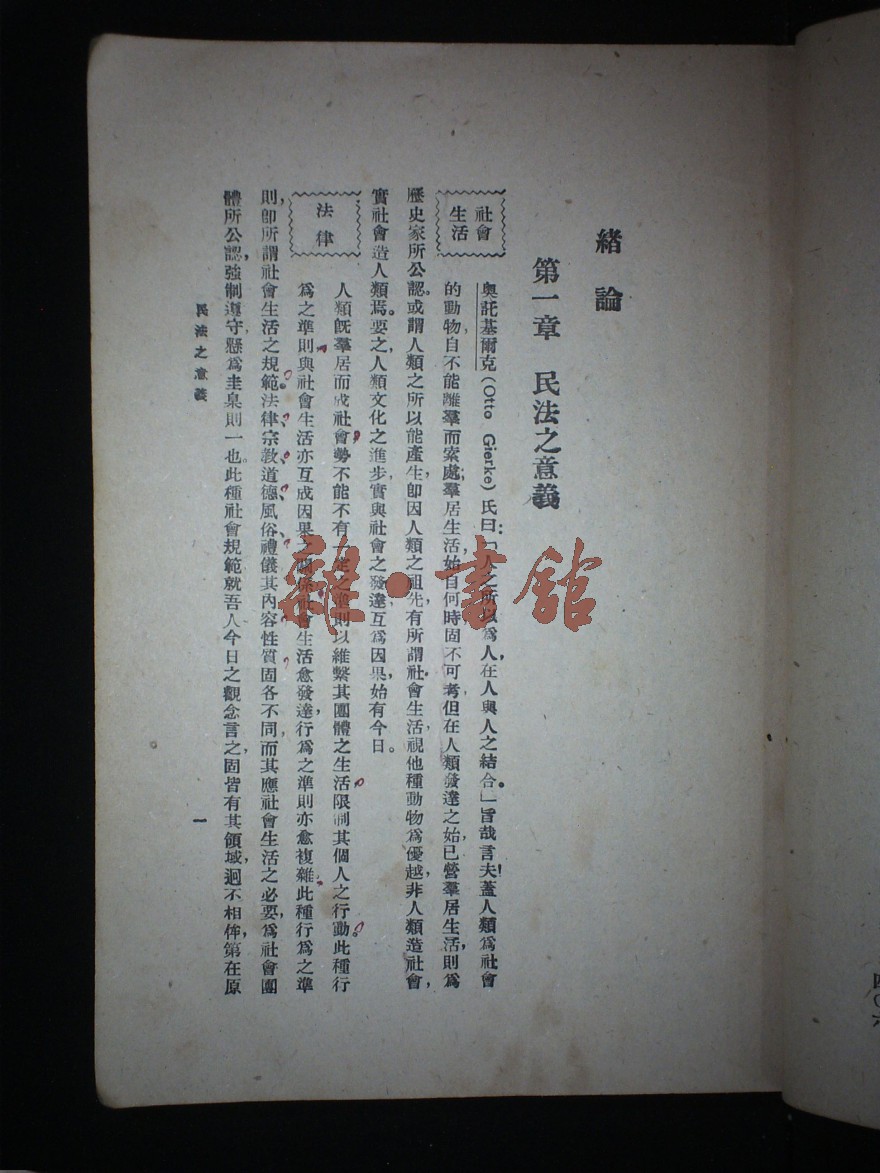 緒論
第一章　民法之意義
社會
生活
奧託基爾克(Otto Gierke)氏曰:「人之所以爲人,在人與人之結合。」旨哉言夫!蓋人類爲社會
的動物,自不能離羣而索處;羣居生活,始自何時,固不可考,但在人類發達之始,已營羣居生活,則爲
歷史家所公認。或謂人類之所以能產生,卽因人類之祖先,有所謂社會生活,視他種動物爲優越,非人類造社會,
實社會造人類焉。要之,人類文化之進步,實與社會之發達,互爲因果,始有今日。
法律
人類旣羣居而成社會,勢不能不有一定之準則,以維繫其團體之生活,限制其個人之行動。此種行
爲之準則,與社會生活,亦互成因果之關係,社會生活愈發達,行爲之準則亦愈複雜,此種行爲之準
則,卽所謂社會生活之規範。法律、宗敎、道德、風俗、禮儀,其內容性質,固各不同,而其應社會生活之必要,爲社會團
體所公認,強制遵守,懸爲圭臬則一也。此種社會規範,就吾人今日之觀念言之,固皆有其領域,迥不相侔,第在原
民法之意義
一
雜·書館